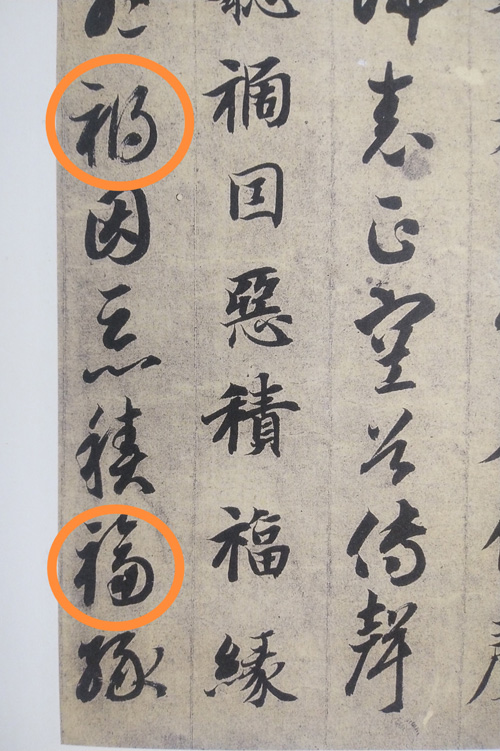 表正空谷傳聲
禍因惡積福緣
禍因惡積福緣